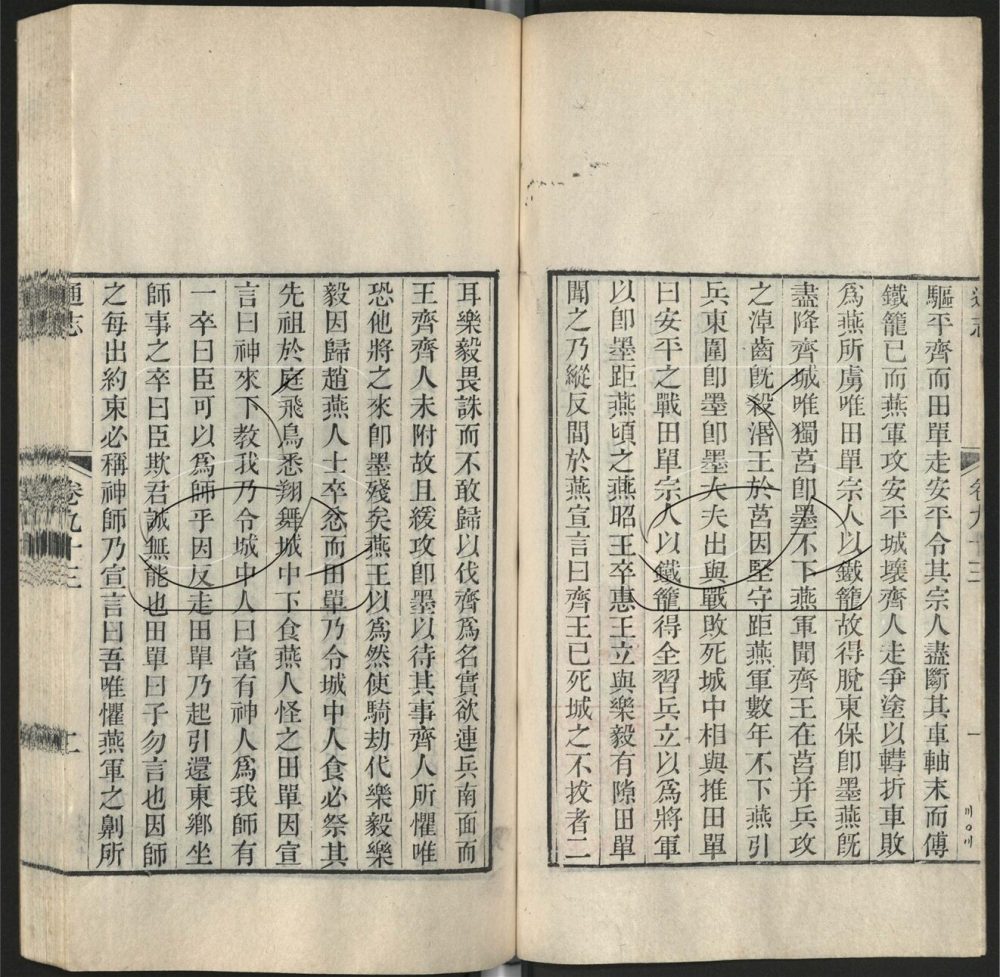 驅平齊而田單走安平令其宗人盡斷其車軸末而傅
鐵籠已而燕軍攻安平城壞齊人走爭塗以轊折車敗
爲燕所虜唯田單宗人以鐵籠故得脫東保卽墨燕旣
盡降齊城唯獨莒卽墨不下燕軍聞齊王在莒并兵攻
之淖齒旣殺湣王於莒因堅守距燕軍數年不下燕引
兵東圍卽墨卽墨大夫出與戰敗死城中相與推田單
曰安平之戰田單宗人以鐵籠得全習兵立以爲將軍
以卽墨距燕頃之燕昭王卒惠王立與樂毅有隙田單
聞之乃縱反間於燕宣言曰齊王已死城之不拔者二
耳樂毅畏誅而不敢歸以伐齊爲名實欲連兵南面而
王齊齊人未附故且緩攻卽墨以待其事齊人所懼唯
恐他將之來卽墨殘矣燕王以爲然使騎劫代樂毅樂
毅因歸趙燕人士卒忿而田單乃令城中人食必祭其
先祖於庭飛鳥悉翔舞城中下食燕人怪之田單因宣
言曰神來下敎我乃令城中人曰當有神人爲我師有
一卒曰臣可以爲師乎因反走田單乃起引還東鄉坐
師事之卒曰臣欺君誠無能也田單曰子勿言也因師
之每出約束必稱神師乃宣言曰吾唯懼燕軍之劓所
通志
卷九十三
二